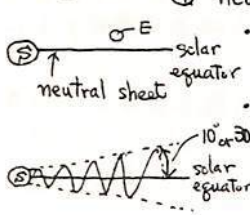 neu
E
S
solar
equator
neutral sheet
10° or 30
S
solar
equator